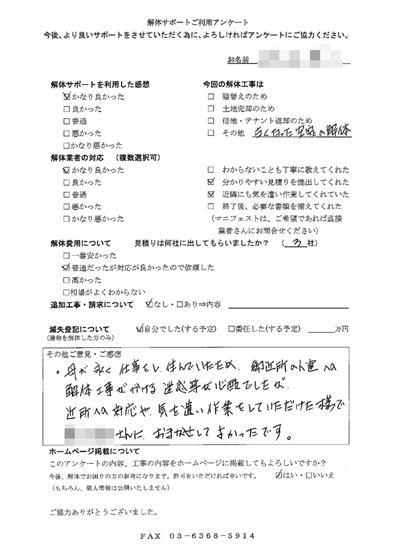 解体サポートご利用アンケート
今後、より良いサポートをさせていただく為に、よろしければアンケートにご協力ください。
お名前
解体サポートを利用した感想
☑かなり良かった
□良かった
□普通
□悪かった
□かなり悪かった
今回の解体工事は
□ 建替えのため
□ 土地売却のため
□ 借地・テナント返却のため
□ その他 古くなった空家の解体
解体業者の対応 (複数選択可)
☑かなり良かった
□良かった
□普通
□悪かった
□かなり悪かった
□ わからないことも丁寧に教えてくれた
☑ 分かりやすい見積りを提出してくれた
☑ 近隣にも気を遣い作業してくれていた
□ 終了後、必要な書類を揃えてくれた
(マニフェストは、ご希望であれば直接
業者さんにお問合せください)
解体費用について 見積りは何社に出してもらいましたか? ( 3 社)
□一番安かった
☑普通だったが対応が良かったので依頼した
□高かった
□相場がよくわからない
追加工事・請求について ☑なし・□あり⇒内容
滅失登記について ☑自分でした(する予定) □委任した(する予定) 万円
(建物を解体した方のみ)
その他ご意見・ご感想
・母が永く仕事をし、住んでいたため、御近所の人達への
解体工事がかける迷惑等が心配でしたが、
近所への対応や、気を遣い作業をしていただけた様で
さんに、おまかせしてよかったです。
ホームページ掲載について
このアンケートの内容、工事の内容をホームページに掲載してもよろしいですか?
今後、解体でお困りの方の参考になります。許可をいただければ幸いです。 ☑はい・□いいえ
(もちろん、個人情報は公開いたしません)
ご協力ありがとうございました。
FAX 03-6368-5914